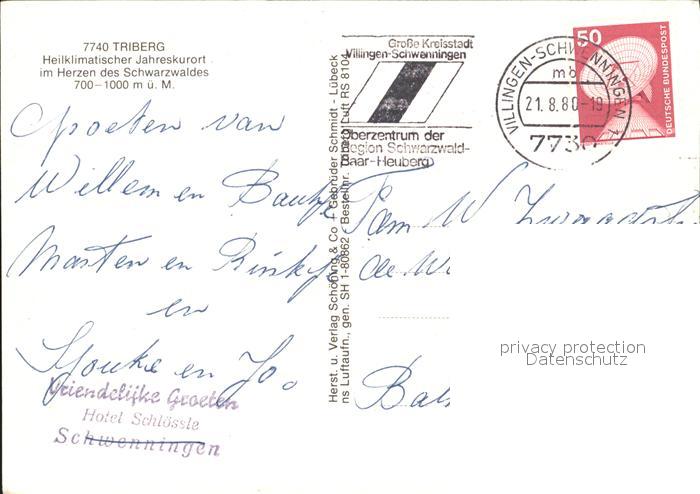 7740 TRIBERG
Heilklimatischer Jahreskurort
im Herzen des Schwarzwaldes
700–1000 m ü. M.
Groeten van
Willem en Bautje
Marten en Rinskje
en
Sjouke en Jo.
Vriendelijke Groeten
Hotel Schlössle
Schwenningen
Herst. u. Verlag Schöning & Co + Gebrüder Schmidt - Lübeck
ns Luftaufn., gen. SH 1-80862 - Bestellnr.
Luft RS 8104
Große Kreisstadt
Villingen-Schwenningen
Oberzentrum der
Region Schwarzwald-
Baar-Heuberg
VILLINGEN-SCHWENNINGEN 1
mb
21.8.80-19
7730
50
DEUTSCHE BUNDESPOST
Fam W
de W
privacy protection
Datenschutz